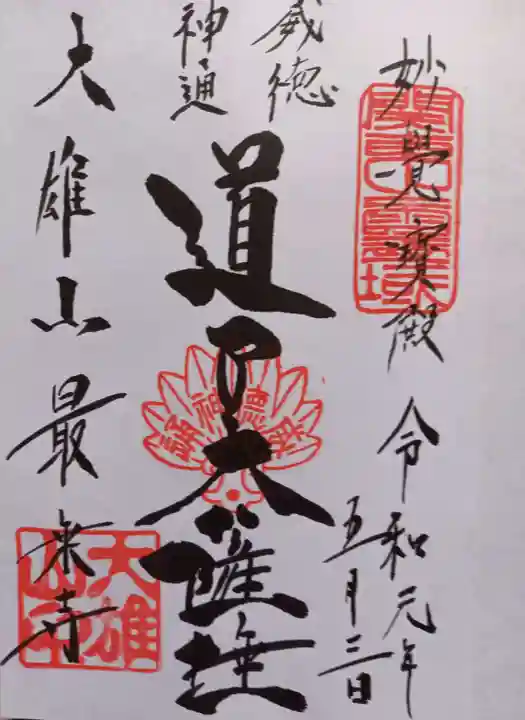 妙覺寳殿 令和元年
五月三日
威徳
神通
道了大薩埵
大雄山最乗寺